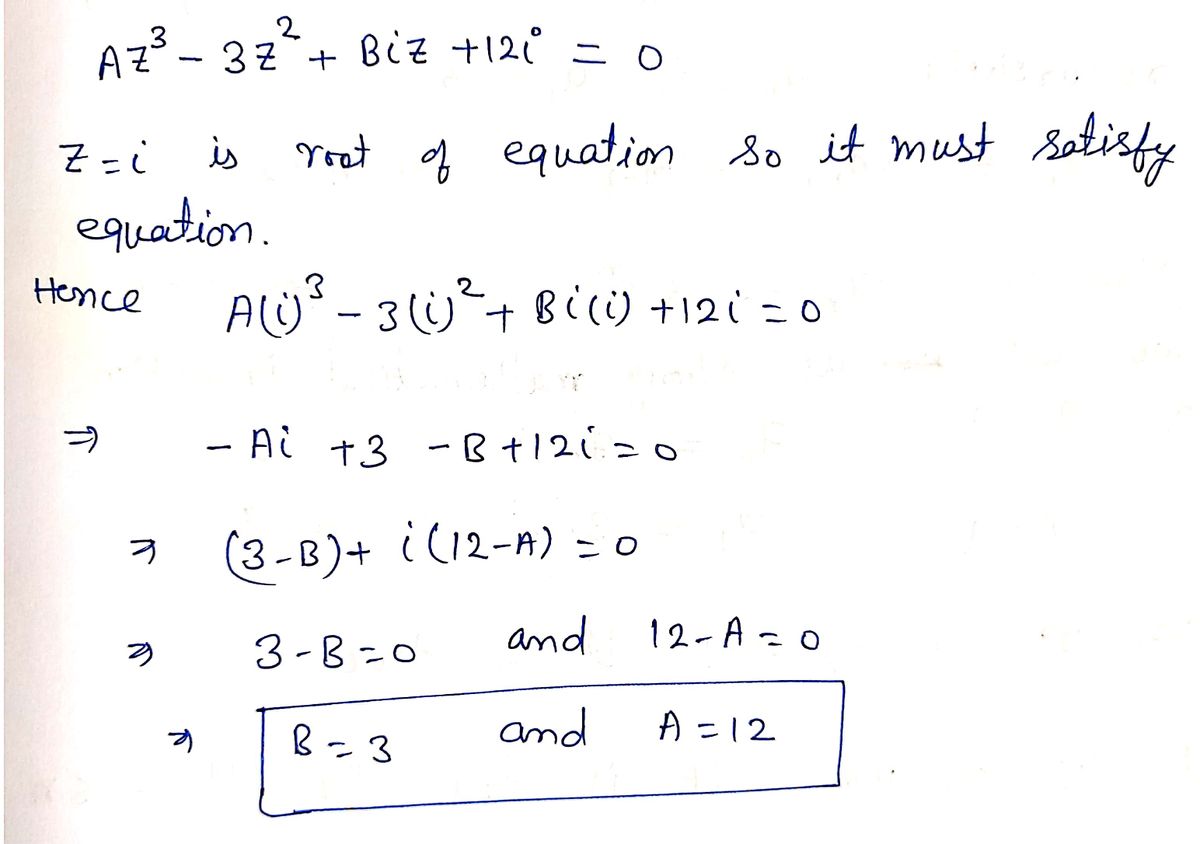 Az³ - 3z² + Biz + 12i = 0
z = i is root of equation so it must satisfy
equation.
Hence A(i)³ - 3(i)² + Bi(i) + 12i = 0
⇒ - Ai + 3 - B + 12i = 0
⇒ (3-B) + i(12-A) = 0
⇒ 3 - B = 0 and 12 - A = 0
⇒ B = 3 and A = 12